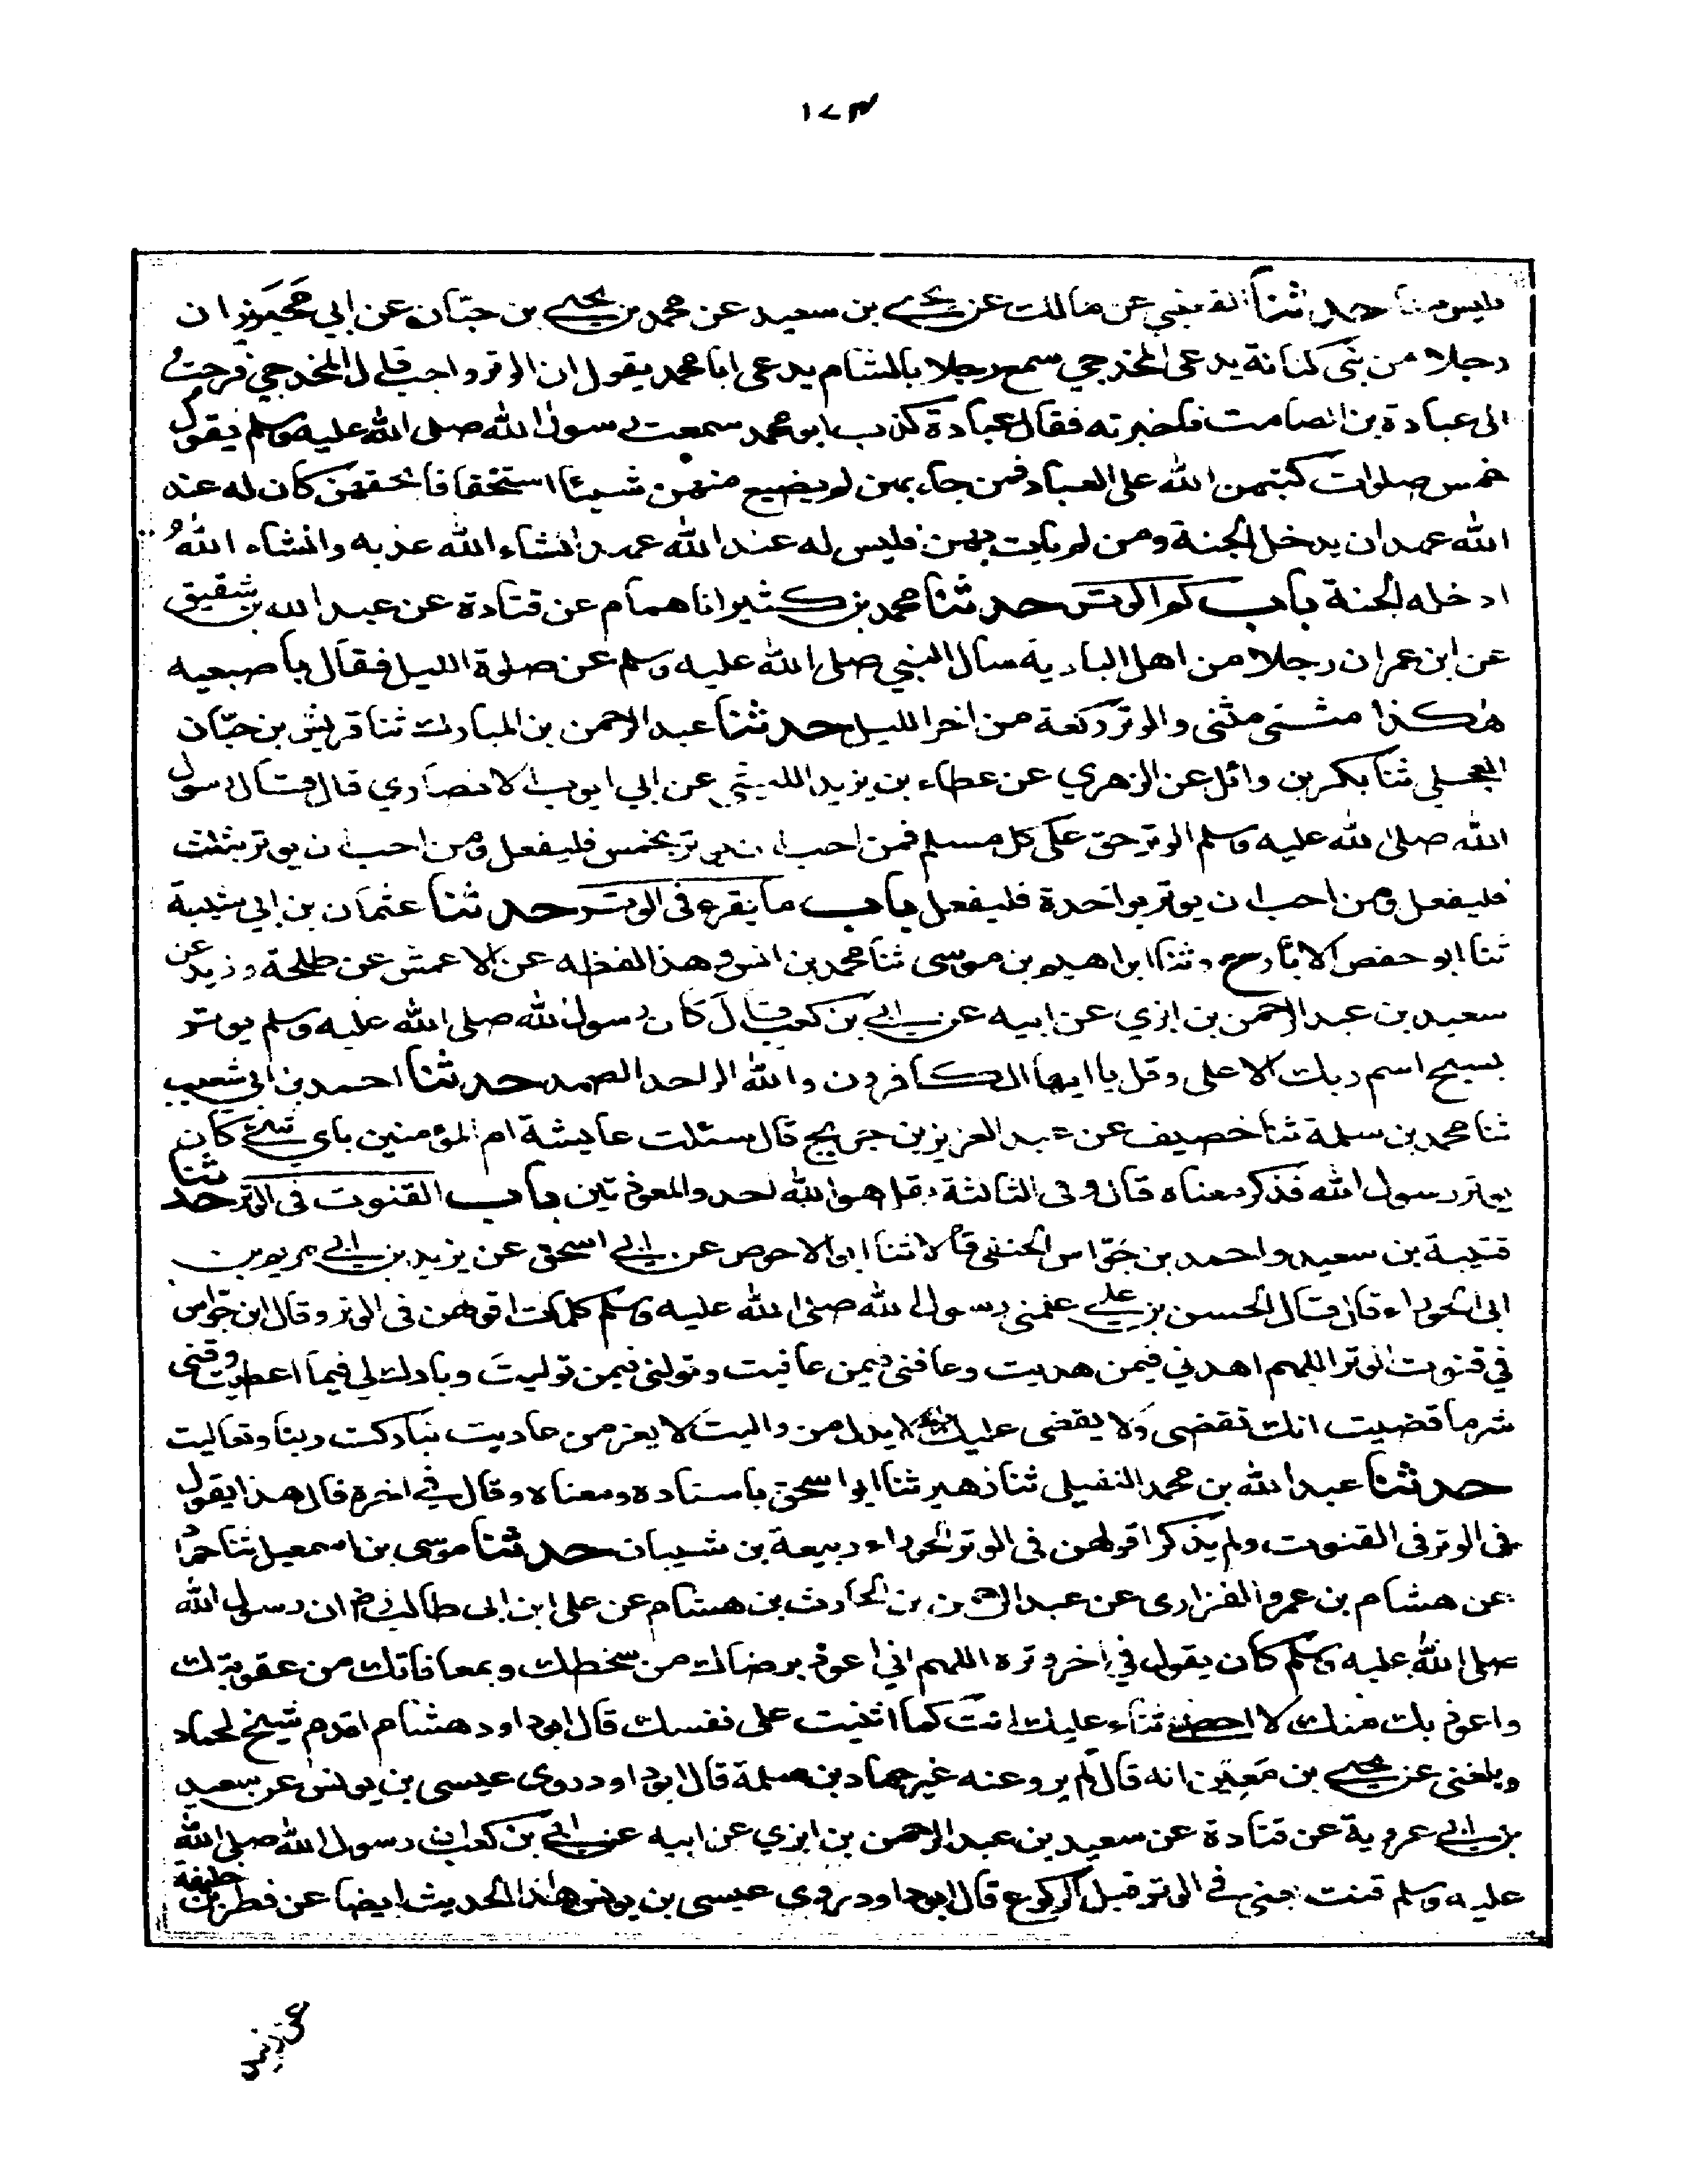 ١٧٣
فليس منا حدثنا القعنبي عن مالك عن يحيى بن سعيد عن محمد بن يحيى بن حبّان عن ابي محيريز ان
رجلا من بني كنانة يدعى المخدجي سمع رجلا بالشام يدعى ابا محمد يقول ان الوتر واجب قال المخدجي فرحتُ
الى عبادة بن الصامت فاخبرته فقال عبادة كذب ابو محمد سمعت رسول الله صلى الله عليه وسلم يقول
خمس صلوات كتبهن الله على العباد فمن جاء بهن لم يضيع منهن شيئا استخفافا بحقهن كان له عند
الله عهد ان يدخل الجنة ومن لم يات بهن فليس له عند الله عهد انشاء الله عذبه وانشاء اللهُ
ادخله الجنة باب كم الوتر حدثنا محمد بن كثير انا همام عن قتادة عن عبد الله بن شقيق
عن ابن عمر ان رجلا من اهل البادية سأل النبي صلى الله عليه وسلم عن صلوة الليل فقال باصبعيه
هكذا مثنى مثنى والوتر ركعة من اخر الليل حدثنا عبد الرحمن بن المبارك ثنا قريش بن حبّان
العجلي ثنا بكر بن وائل عن الزهري عن عطاء بن يزيد الليثي عن ابي ايوب الانصاري قال قال رسول
الله صلى الله عليه وسلم الوتر حق على كل مسلم فمن احب ان يوتر بخمس فليفعل ومن احب ان يوتر بثلث
فليفعل ومن احب ان يوتر بواحدة فليفعل باب ما يقرء في الوتر حدثنا عثمان بن ابي شيبة
ثنا ابو حفص الابار ح وثنا ابراهيم بن موسى ثنا محمد بن انس وهذا لفظه عن الاعمش عن طلحة وزبيد عن
سعيد بن عبد الرحمن بن ابزي عن ابيه عن ابي بن كعب قال كان رسول الله صلى الله عليه وسلم يوتر
بسبح اسم ربك الاعلى وقل يا ايها الكافرون والله الواحد الصمد حدثنا احمد بن ابي شعيب
ثنا محمد بن سلمة ثنا خصيف عن عبد العزيز بن جريج قال سئلت عايشة ام المؤمنين باي شئ كان
يوتر رسول الله فذكر معناه قال وفي الثالثة بقل هو الله احد والمعوذتين باب القنوت في الوتر حدثنا
قتيبة بن سعيد واحمد بن جوّاس الحنفي قالا ثنا ابو الاحوص عن ابي اسحق عن يزيد بن ابي مريم عن
ابي الحوراء قال قال الحسن بن علي علمني رسول الله صلى الله عليه وسلم كلمات اقولهن في الوتر وقال ابن جوّاس
في قنوت الوتر اللهم اهدني فيمن هديت وعافني فيمن عافيت وتولني فيمن توليتَ وبارك لي فيما اعطيت وقني
شر ما قضيت انك تقضي ولا يقضى عليك وانه لا يذل من واليت لا يعز من عاديت تباركت ربنا وتعاليت
حدثنا عبد الله بن محمد النفيلي ثنا زهير ثنا ابو اسحق باسناده ومعناه وقال في اخرة قال هذا يقول
في الوتر في القنوت ولم يذكر اقولهن في الوتر الحوراء ربيعة بن شيبان حدثنا موسى بن اسمعيل ثنا حمّاد
عن هشام بن عمرو الفزارى عن عبد الرحمن بن الحارث بن هشام عن على ابن ابى طالب رض ان رسول الله
صلى الله عليه وسلم كان يقول في اخر وتره اللهم اني اعوذ برضاك من سخطك وبمعافاتك من عقوبتك
واعوذ بك منك لا احصي ثناء عليك انت كما اثنيت على نفسك قال ابو داود هشام اقدم شيخ لحماد
وبلغني عن يحيى بن مَعِين انه قال لم يرو عنه غير حماد بن سلمة قال ابو داود روى عيسى بن يونس عن سعيد
بن ابي عروبة عن قتادة عن سعيد بن عبد الرحمن بن ابزي عن ابيه عن ابي بن كعب ان رسول الله صلى الله
عليه وسلم قنت يعني في الوتر قبل الركوع قال ابو داود روى عيسى بن يونس هذا الحديث ايضا عن فطر بن خليفة
عن زبيد